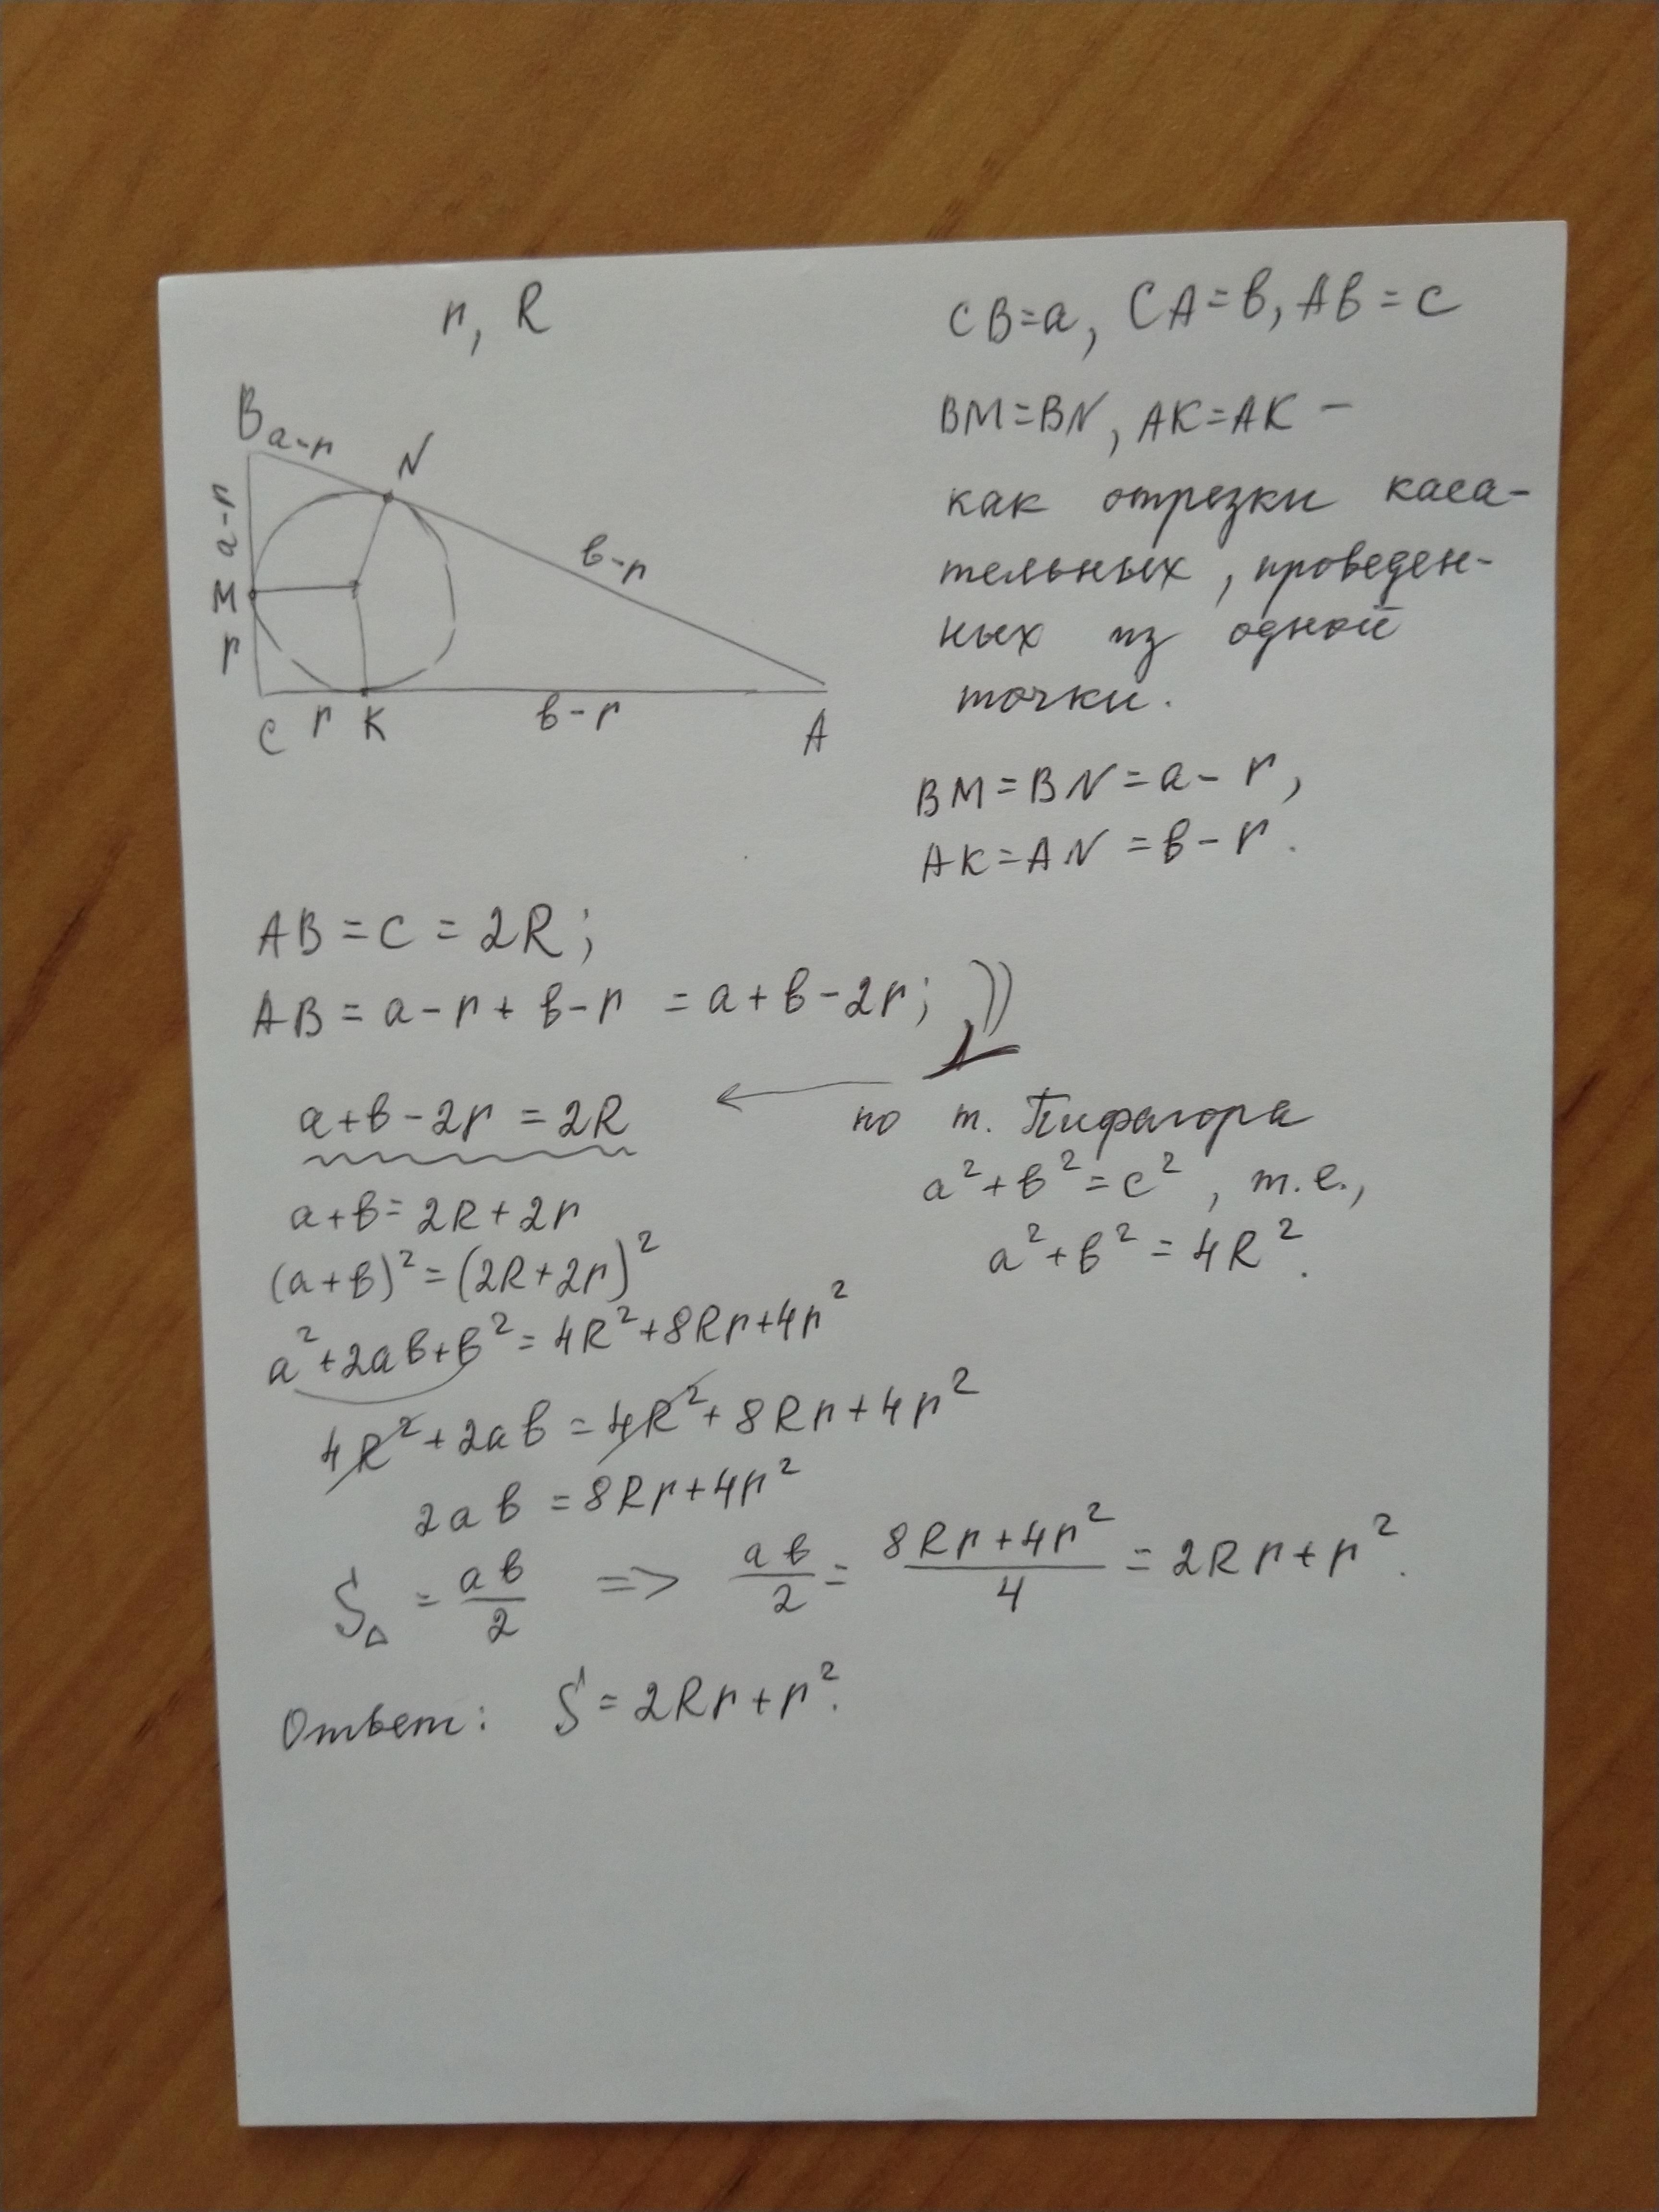 r, R
CB=a, CA=в, AB=c
B a-r
N
a-r
в-r
M
r
C r K в-r A
BM=BN, AK=AK –
как отрезки каса-
тельных, проведен-
ных из одной
точки.
BM=BN=a-r,
AK=AN=в-r.
AB=c=2R;
AB=a-r+в-r=a+в-2r;
a+в-2r=2R
по т. Пифагора
a²+в²=c², т.е.,
a²+в²=4R².
a+в=2R+2r
(a+в)²=(2R+2r)²
a²+2aв+в²=4R²+8Rr+4r²
4R²+2aв=4R²+8Rr+4r²
2aв=8Rr+4r²
S△=aв/2 => aв/2=(8Rr+4r²)/4=2Rr+r².
Ответ: S=2Rr+r².